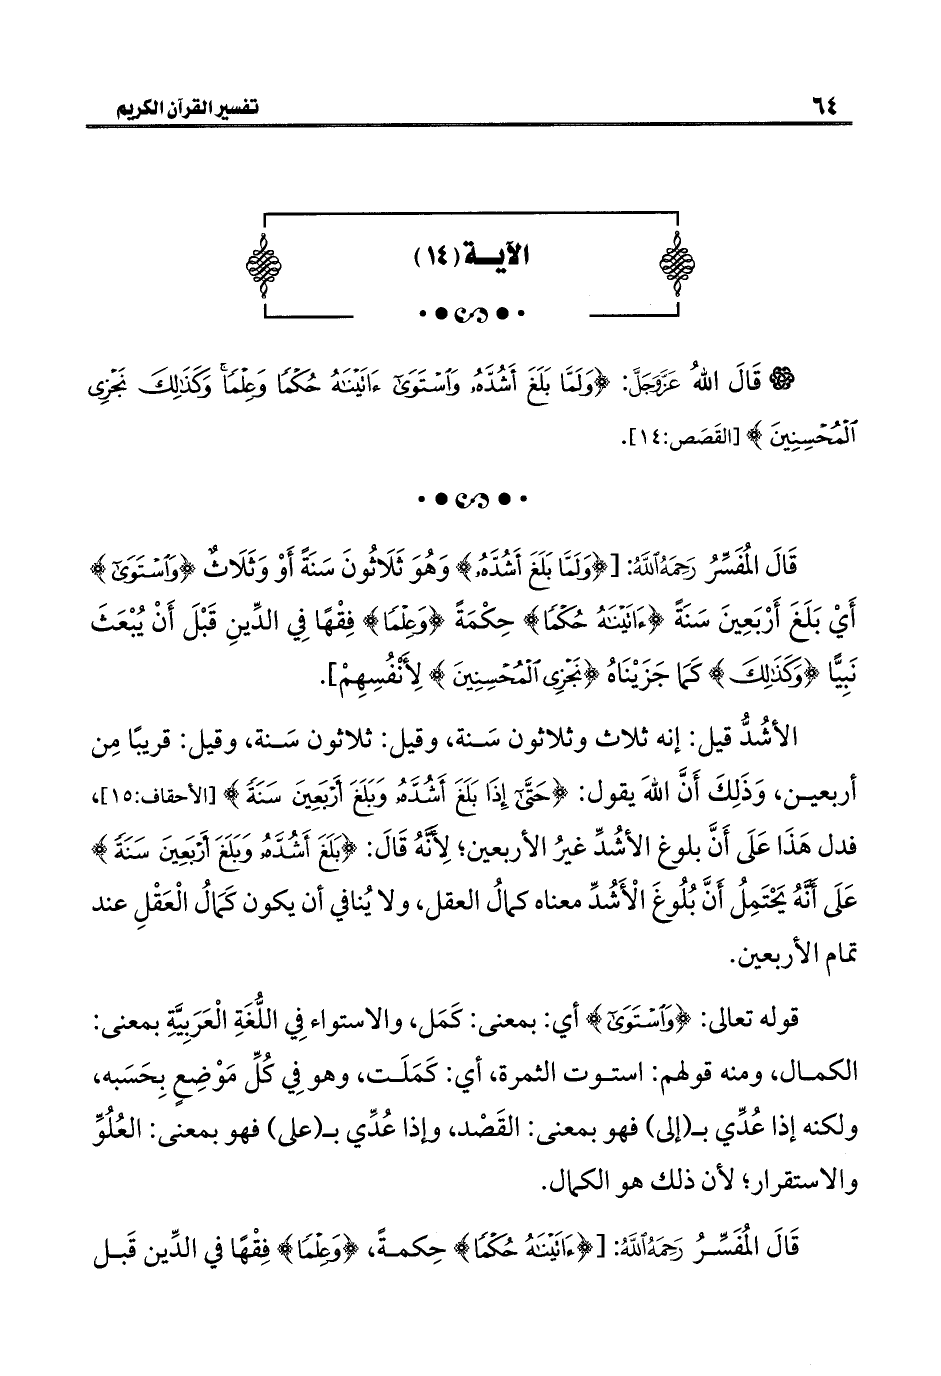 ٦٤
تفسير القرآن الكريم
الآيــة (١٤)
قَالَ اللهُ عَزَّوَجَلَّ: ﴿وَلَمَّا بَلَغَ أَشُدَّهُۥ وَٱسْتَوَىٰٓ ءَاتَيْنَٰهُ حُكْمًا وَعِلْمًا ۚ وَكَذَٰلِكَ نَجْزِى
ٱلْمُحْسِنِينَ ﴾ [القَصَص:١٤].
قَالَ الْمُفَسِّرُ رَحِمَهُ ٱللَّهُ: [﴿وَلَمَّا بَلَغَ أَشُدَّهُۥ﴾ وَهُوَ ثَلَاثُونَ سَنَةً أَوْ وَثَلَاثٌ ﴿وَٱسْتَوَىٰٓ﴾
أَيْ بَلَغَ أَرْبَعِينَ سَنَةً ﴿ءَاتَيْنَٰهُ حُكْمًا﴾ حِكْمَةً ﴿وَعِلْمًا﴾ فِقْهًا فِي الدِّينِ قَبْلَ أَنْ يُبْعَثَ
نَبِيًّا ﴿وَكَذَٰلِكَ﴾ كَمَا جَزَيْنَاهُ ﴿نَجْزِى ٱلْمُحْسِنِينَ﴾ لِأَنْفُسِهِمْ].
الأشُدُّ قيل: إنه ثلاث وثلاثون سَنة، وقيل: ثلاثون سَنة، وقيل: قريبًا مِن
أربعيـن، وَذَلِكَ أَنَّ اللهَ يقول: ﴿حَتَّىٰٓ إِذَا بَلَغَ أَشُدَّهُۥ وَبَلَغَ أَرْبَعِينَ سَنَةً﴾ [الأحقاف:١٥]،
فدل هَذَا عَلَى أَنَّ بلوغ الأشُدِّ غيرُ الأربعين؛ لِأَنَّهُ قَالَ: ﴿بَلَغَ أَشُدَّهُۥ وَبَلَغَ أَرْبَعِينَ سَنَةً﴾
عَلَى أَنَّهُ يَحْتَمِلُ أَنَّ بُلُوغَ الْأَشُدِّ معناه كمالُ العقل، ولا يُنافي أن يكون كَمَالُ الْعَقْلِ عند
تمام الأربعين.
قوله تعالى: ﴿وَٱسْتَوَىٰٓ﴾ أي: بمعنى: كَمَل، والاستواء فِي اللُّغَةِ الْعَرَبِيَّةِ بمعنى:
الكمـال، ومنه قولهم: استـوت الثمرة، أي: كَمَلَـت، وهو فِي كُلِّ مَوْضِعٍ بِحَسَبه،
ولكنه إذا عُدِّي بـ(إلى) فهو بمعنى: القَصْد، وإذا عُدِّي بـ(على) فهو بمعنى: العُلُوِّ
والاستقرار؛ لأن ذلك هو الكمال.
قَالَ الْمُفَسِّـرُ رَحِمَهُ ٱللَّهُ: [﴿ءَاتَيْنَٰهُ حُكْمًا﴾ حِكمـةً، ﴿وَعِلْمًا﴾ فِقْهًا في الدِّين قَبـل